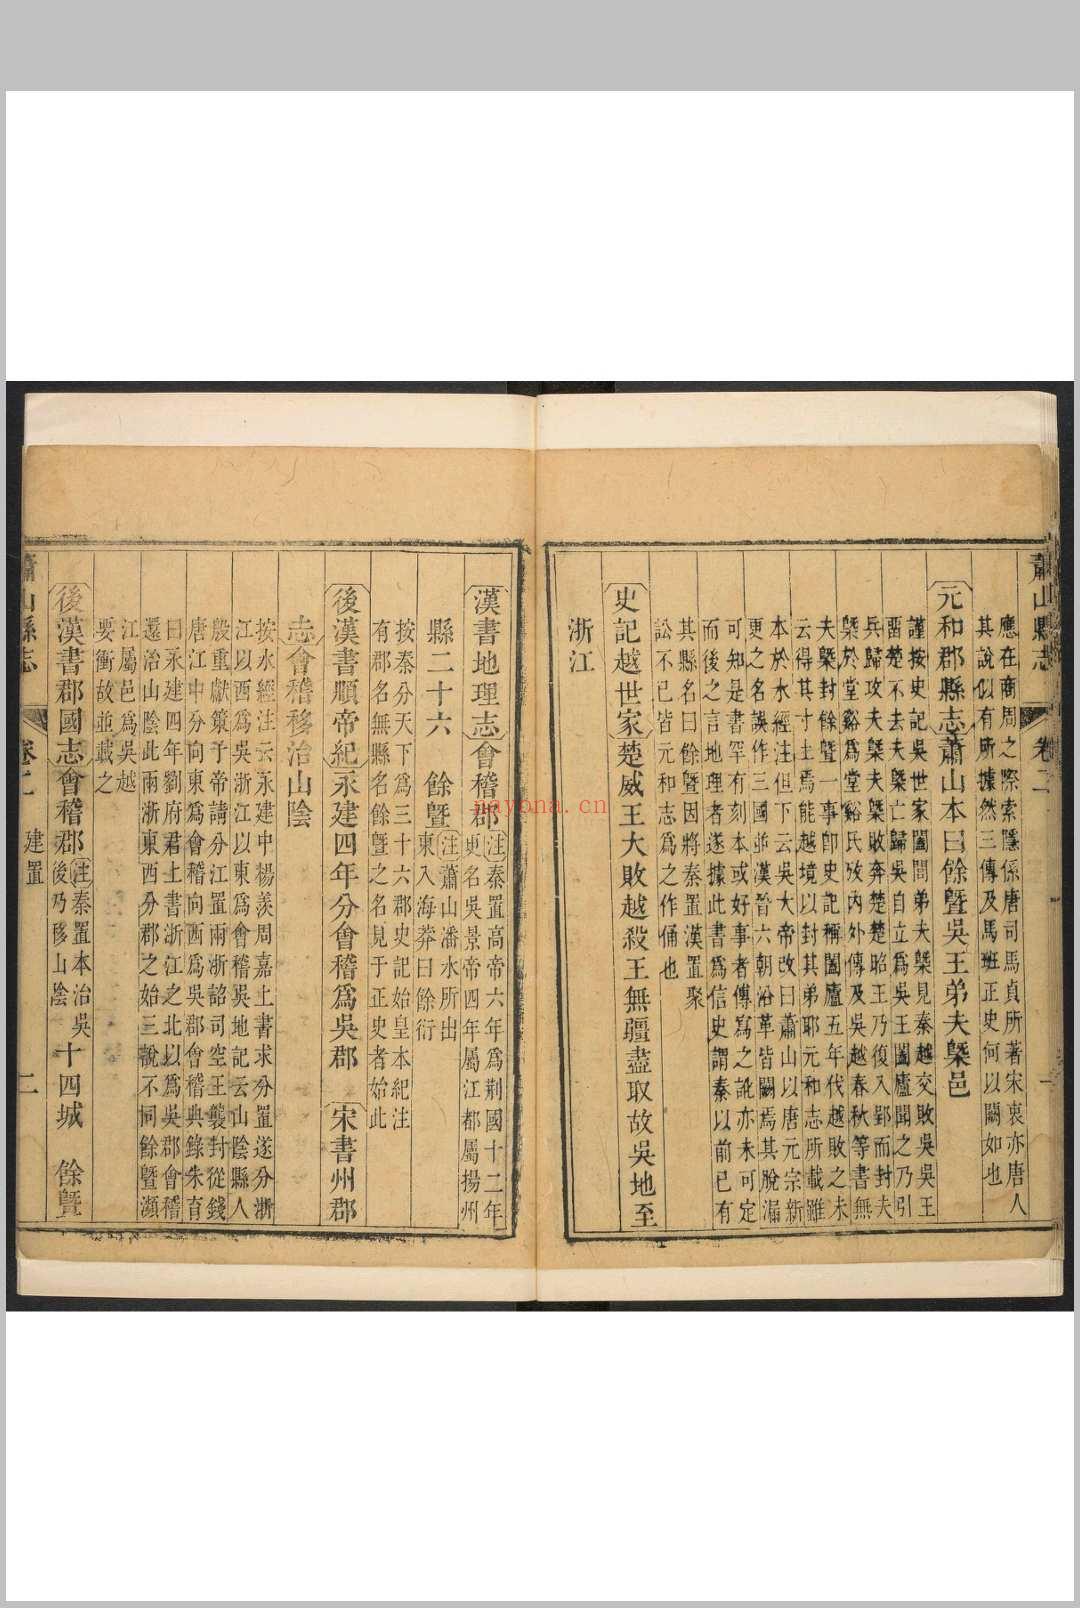 蕭山縣志 卷二
應在商周之際索隱係唐司馬貞所著宋衷亦唐人
其說似有所據然三傳及馬班正史何以闕如也
元和郡縣志蕭山本曰餘暨吳王弟夫槩邑
謹按史記吳世家闔閭弟夫槩見秦越交敗吳吳王
畱楚不去夫槩亡歸吳自立爲吳王闔廬聞之乃引
兵歸攻夫槩夫槩敗奔楚楚昭王乃復入郢而封夫
槩於堂谿爲堂谿氏攷內外傳及吳越春秋等書無
夫槩封餘暨一事卽史記稱闔廬五年代越敗之未
云得其寸土焉能越境以封其弟耶元和志所載雖
本於水經注但下云吳大帝改曰蕭山以唐元宗新
更之名誤作三國並漢晉六朝沿革皆闕焉其脫漏
可知是書罕有刻本或好事者傳寫之訛亦未可定
而後之言地理者遂據此書爲信史謂秦以前已有
其縣名曰餘暨因將秦置漢置聚
訟不已皆元和志爲之作俑也
史記越世家楚威王大敗越殺王無疆盡取故吳地至
浙江
漢書地理志會稽郡注秦置高帝六年爲荆國十二年
更名吳景帝四年屬江都屬揚州
縣二十六 餘暨注蕭山潘水所出
東入海莽曰餘衍
按秦分天下爲三十六郡史記始皇本紀注
有郡名無縣名餘暨之名見于正史者始此
後漢書順帝紀永建四年分會稽爲吳郡 宋書州郡
志會稽移治山陰
按水經注云永建中楊羨周嘉上書求分置遂分浙
江以西爲吳浙江以東爲會稽吳地記云山陰縣人
殷重獻策于帝請分江置兩浙詔司空王襲封從錢
唐江中分向東爲會稽向西爲吳郡會稽典錄朱育
曰永建四年劉府君上書浙江之北以爲吳郡會稽
還治山陰此兩浙東西分郡之始三說不同餘暨瀕
江屬邑爲吳越
要衝故並載之
後漢書郡國志會稽郡注秦置本治吳
後乃移山陰
十四城 餘暨
蕭山縣志 卷二 建置 二